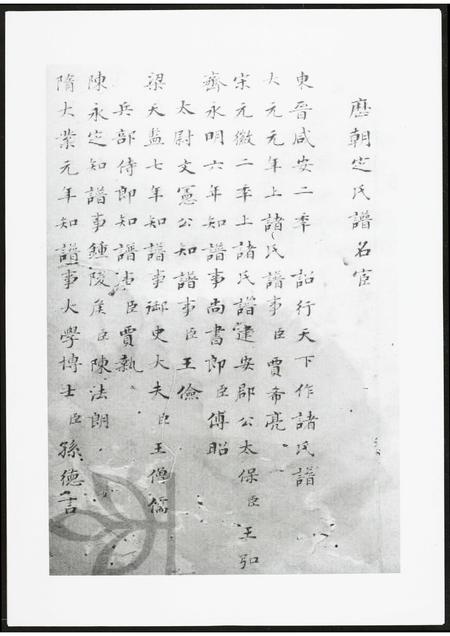 歷朝定氏譜名宦
東晉咸安二年 詔行天下作諸氏譜
太元元年上諸氏譜事臣賈希亮
宋元徽二年上諸氏譜建安郡公太保臣王弘
齊永明六年知譜事尚書郎臣傅昭
太尉文憲公知譜事臣王儉
梁天監七年知譜事御史大夫臣王僧儒
兵部侍郎知譜局臣賈執
陳永定知譜事鍾陵侯臣陳法朗
隋大業元年知譜事大學博士臣孫德言